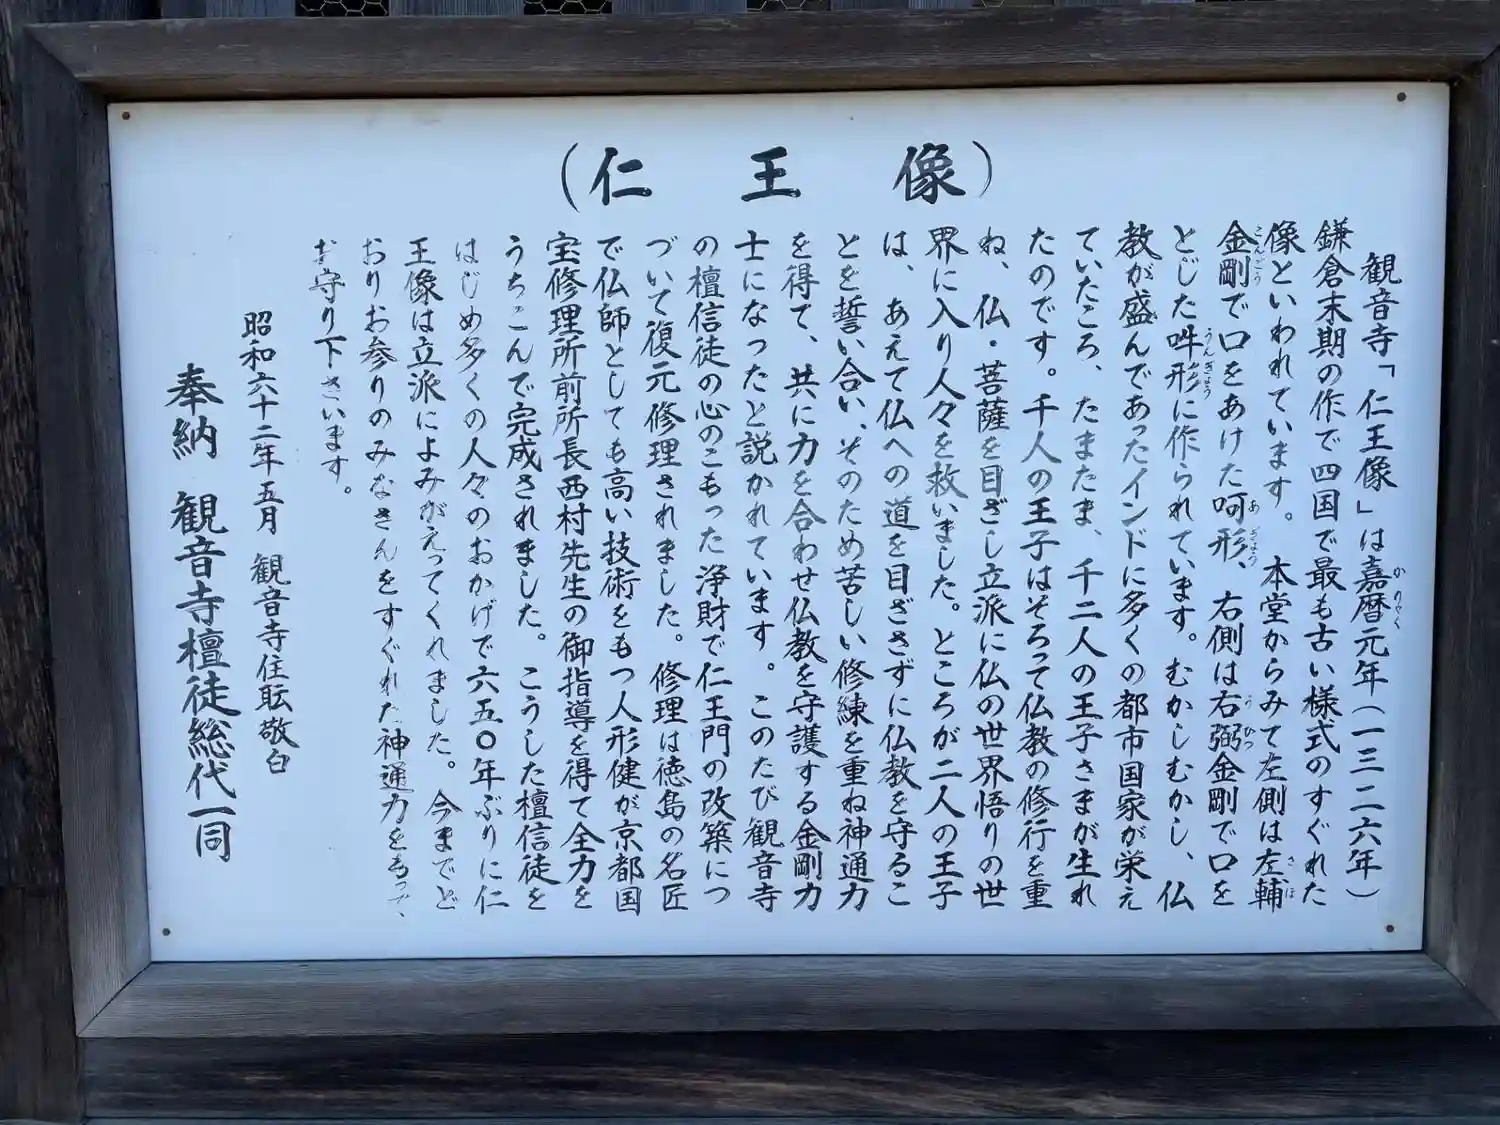 （仁王像）
観音寺「仁王像」は嘉暦元年（一三二六年）
鎌倉末期の作で四国で最も古い様式のすぐれた
像といわれています。本堂からみて左側は左輔
金剛で口をあけた呵形、右側は右弼金剛で口を
とじた吽形に作られています。むかしむかし、仏
教が盛んであったインドに多くの都市国家が栄え
ていたころ、たまたま、千二人の王子さまが生れ
たのです。千人の王子はそろって仏教の修行を重
ね、仏・菩薩を目ざし立派に仏の世界悟りの世
界に入り人々を救いました。ところが二人の王子
は、あえて仏への道を目ざさずに仏教を守るこ
とを誓い合い、そのため苦しい修練を重ね神通力
を得て、共に力を合わせ仏教を守護する金剛力
士になったと説かれています。このたび観音寺
の檀信徒の心のこもった浄財で仁王門の改築につ
づいて復元修理されました。修理は徳島の名匠
で仏師としても高い技術をもつ人形健が京都国
宝修理所前所長西村先生の御指導を得て全力を
うちこんで完成されました。こうした檀信徒を
はじめ多くの人々のおかげで六五〇年ぶりに仁
王像は立派によみがえってくれました。今までど
おりお参りのみなさんをすぐれた神通力をもって、
お守り下さいます。
昭和六十二年五月 観音寺住職 敬白
奉納 観音寺檀徒総代一同